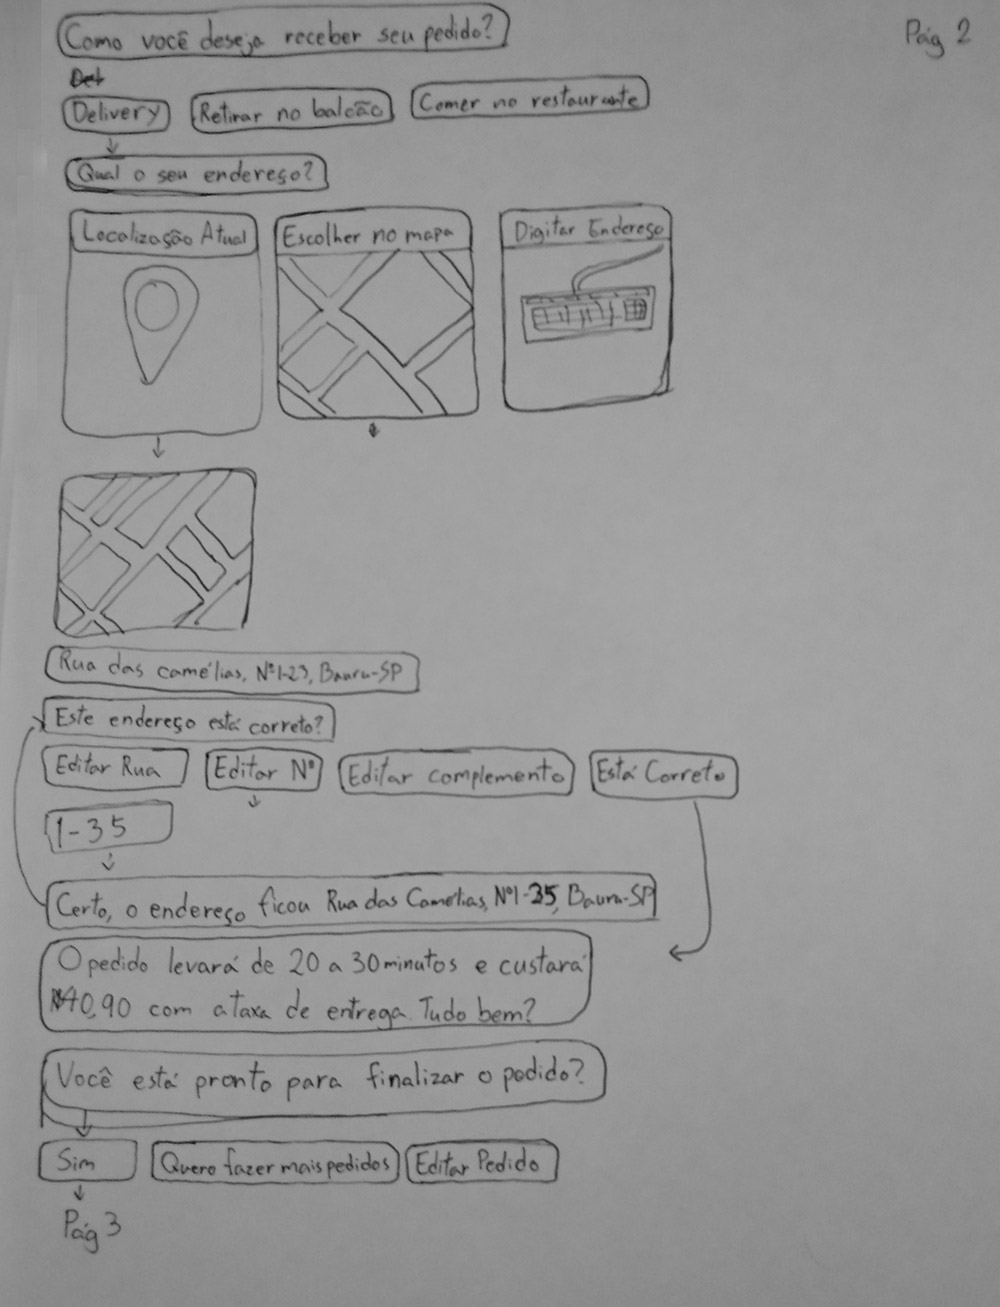 Pág 2
Como você deseja receber seu pedido?
Del
Delivery Retirar no balcão Comer no restaurante
Qual o seu endereço?
Localização Atual Escolher no mapa Digitar Endereço
Rua das camélias, Nº1-23, Bauru-SP
Este endereço está correto?
Editar Rua Editar Nº Editar complemento Está Correto
1-35
Certo, o endereço ficou Rua das Camélias, Nº1-35, Bauru-SP
O pedido levará de 20 a 30 minutos e custará
R$40,90 com a taxa de entrega. Tudo bem?
Você está pronto para finalizar o pedido?
Sim Quero fazer mais pedidos Editar Pedido
Pág 3